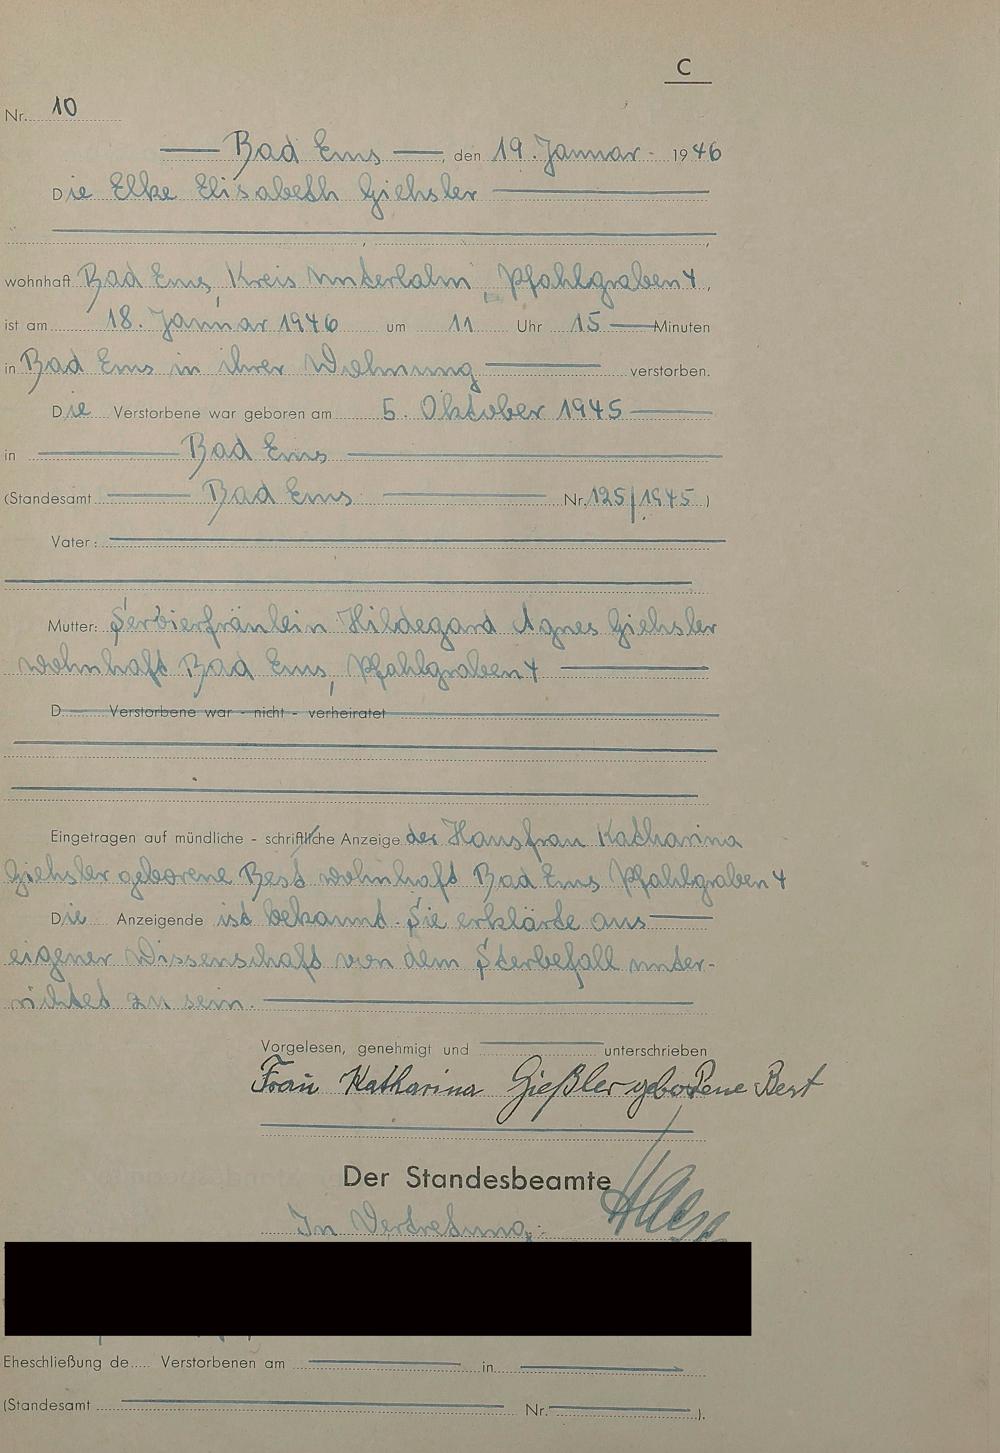 C
Nr. 10
Bad Ems, den 19. Januar 1946
Die Elke Elisabeth Giehsler
wohnhaft Bad Ems, Kreis Unterlahn, Pfahlgraben 4,
ist am 18. Januar 1946 um 11 Uhr 15 Minuten
in Bad Ems in ihrer Wohnung verstorben.
Die Verstorbene war geboren am 5. Oktober 1945
in Bad Ems
(Standesamt Bad Ems Nr. 125/1945)
Vater:
Mutter: Servierfräulein Hildegard Agnes Giehsler
wohnhaft Bad Ems, Pfahlgraben 4
D Verstorbene war - nicht - verheiratet
Eingetragen auf mündliche - schriftliche Anzeige der Hausfrau Katharina
Giehsler geborene Best wohnhaft Bad Ems Pfahlgraben 4
Die Anzeigende ist bekannt. Sie erklärte aus
eigener Wissenschaft von dem Sterbefall unter-
richtet zu sein.
Vorgelesen, genehmigt und unterschrieben
Frau Katharina Gießler geborene Best
Der Standesbeamte
In Vertretung:
Eheschließung de..... Verstorbenen am in
(Standesamt Nr. ).